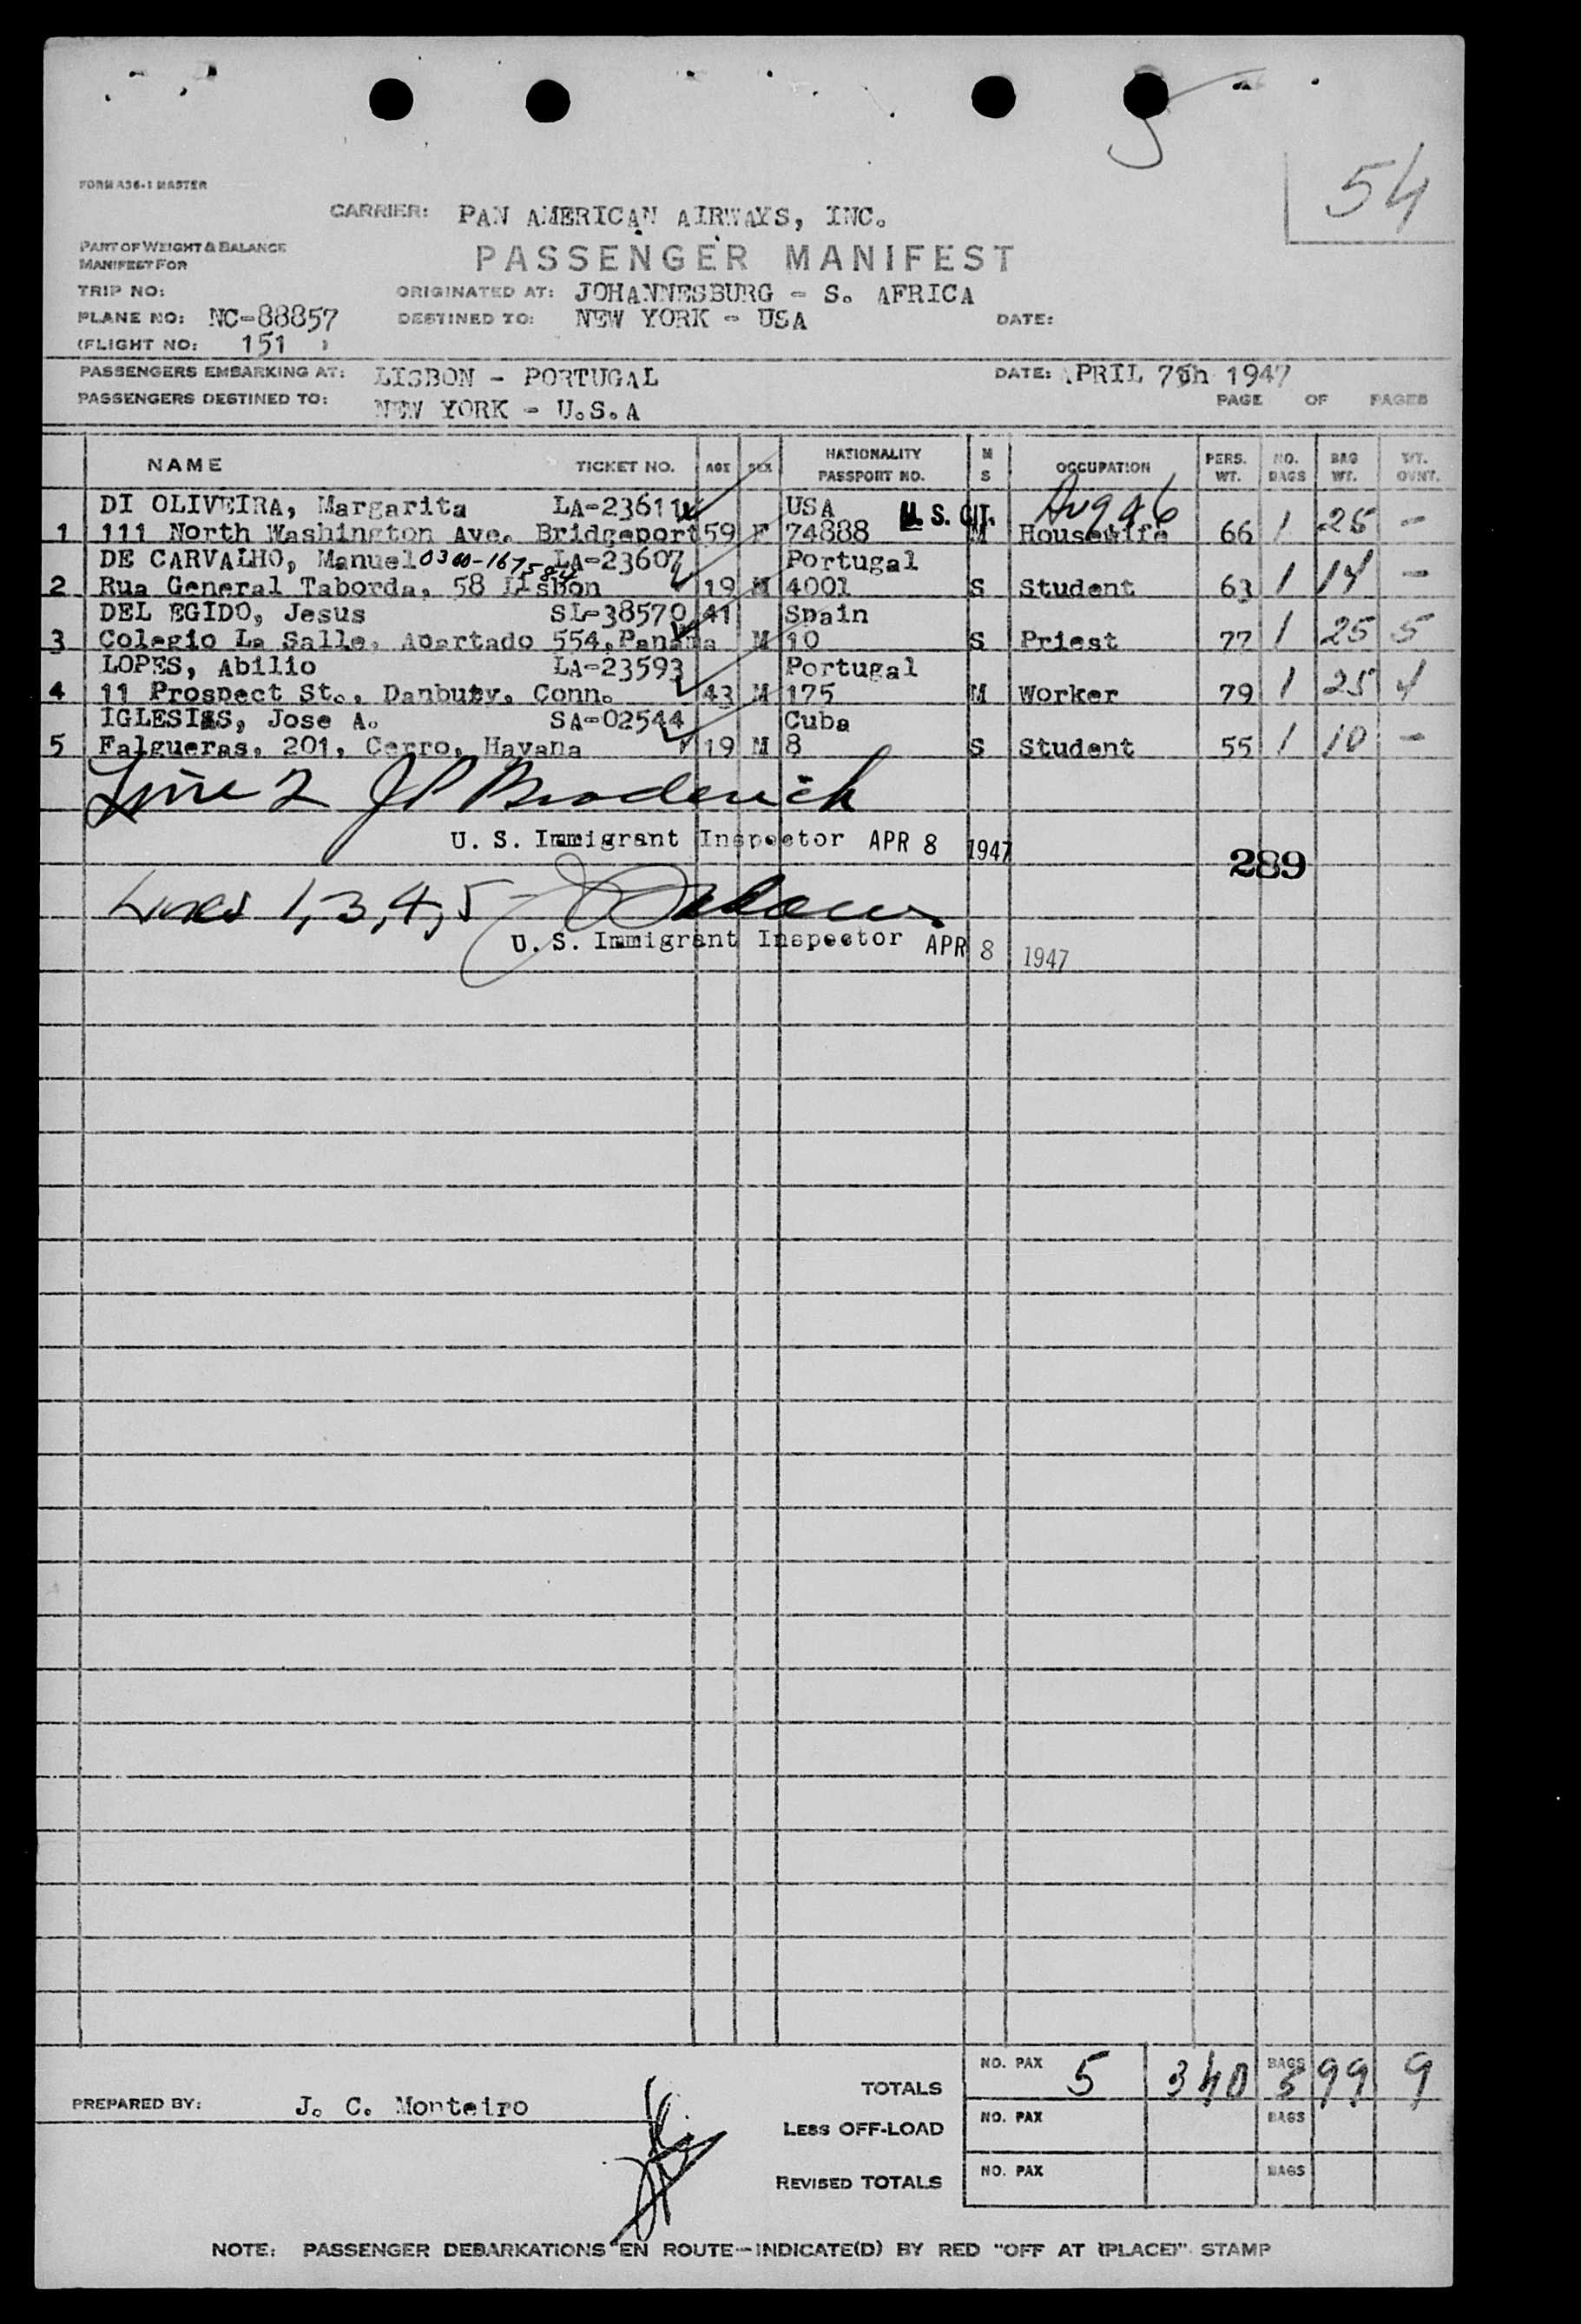 54
FORM A36-1 MASTER
CARRIER: PAN AMERICAN AIRWAYS, INC.
PART OF WEIGHT & BALANCE
MANIFEST FOR
PASSENGER MANIFEST
TRIP NO:
ORIGINATED AT: JOHANNESBURG - S. AFRICA
PLANE NO: NC-88857
DESTINED TO: NEW YORK - USA
DATE:
(FLIGHT NO: 151 )
PASSENGERS EMBARKING AT: LISBON - PORTUGAL
DATE: APRIL 7th 1947
PASSENGERS DESTINED TO: NEW YORK - U.S.A
PAGE OF PAGES
NAME TICKET NO. AGE SEX NATIONALITY PASSPORT NO. M S OCCUPATION PERS. WT. NO. BAGS BAG WT. WT. OVWT.
DI OLIVEIRA, Margarita LA-23611 USA U. S. CIT.
1 111 North Washington Ave. Bridgeport 59 F 74888 M Housewife 66 1 25 -
DE CARVALHO, Manuel 0300-167584 LA-23607 Portugal
2 Rua General Taborda, 58 Lisbon 19 M 4001 S Student 63 1 14 -
DEL EGIDO, Jesus SL-38570 41 Spain
3 Colegio La Salle, Apartado 554, Panama M 10 S Priest 77 1 25 5
LOPES, Abilio LA-23593 Portugal
4 11 Prospect St., Danbuty, Conn. 43 M 175 M Worker 79 1 25 4
IGLESIAS, Jose A. SA-02544 Cuba
5 Falgueras, 201, Cerro, Havana 19 M 8 S Student 55 1 10 -
Line 2 JP Broderick
U. S. Immigrant Inspector APR 8 1947
289
Lines 1,3,4,5
U. S. Immigrant Inspector APR 8 1947
TOTALS NO. PAX 5 340 BAGS 5 99 9
PREPARED BY: J. C. Monteiro
LESS OFF-LOAD NO. PAX BAGS
REVISED TOTALS NO. PAX BAGS
NOTE: PASSENGER DEBARKATIONS EN ROUTE-INDICATE(D) BY RED "OFF AT (PLACE)" STAMP